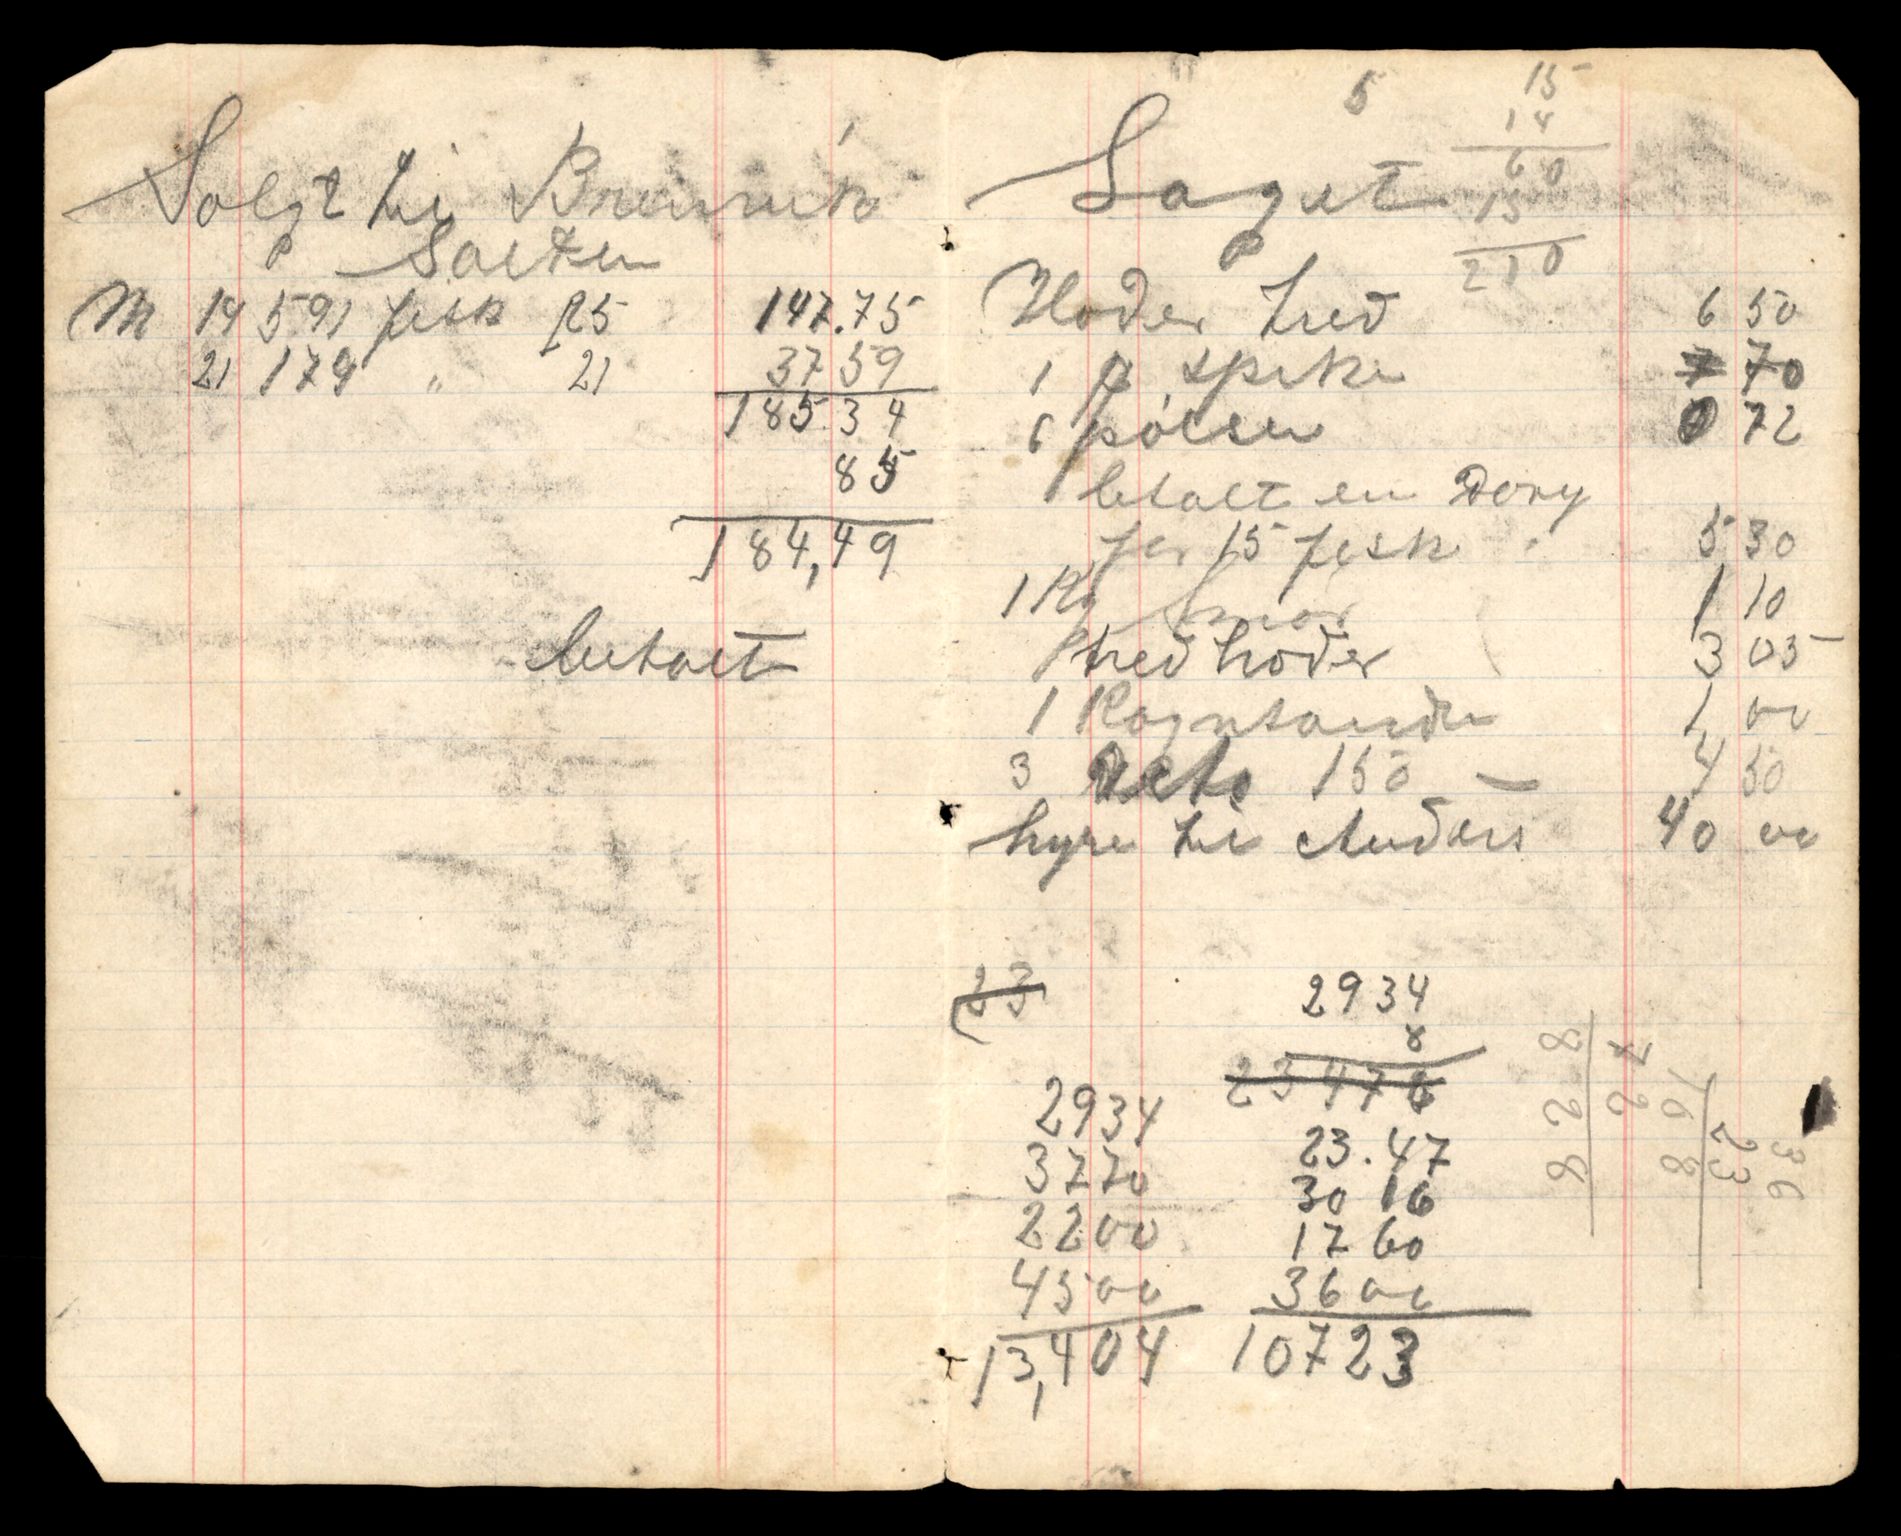 Solgt til Brennvik
Salten
M 14 591 fisk 25 147.75
21 179 " 21 37 59
185.34
85
184,49
betalt
5
15
14
60
15
210
Laget
Hoder tred 6 50
1 p spiker 7 70
6 pølser 0 72
betalt en Dory
for 15 fisk 5 30
1 Kg Smør 1 10
tred hoder 3 05
1 Rogntønde 1 00
3 Dito 150 — 4 50
hyre til Anders 40 00
23
2934
8
23476
2934
3770
2200
4500
13,404
23.47
30 16
17 60
36 00
10723
36
23
168
72
828